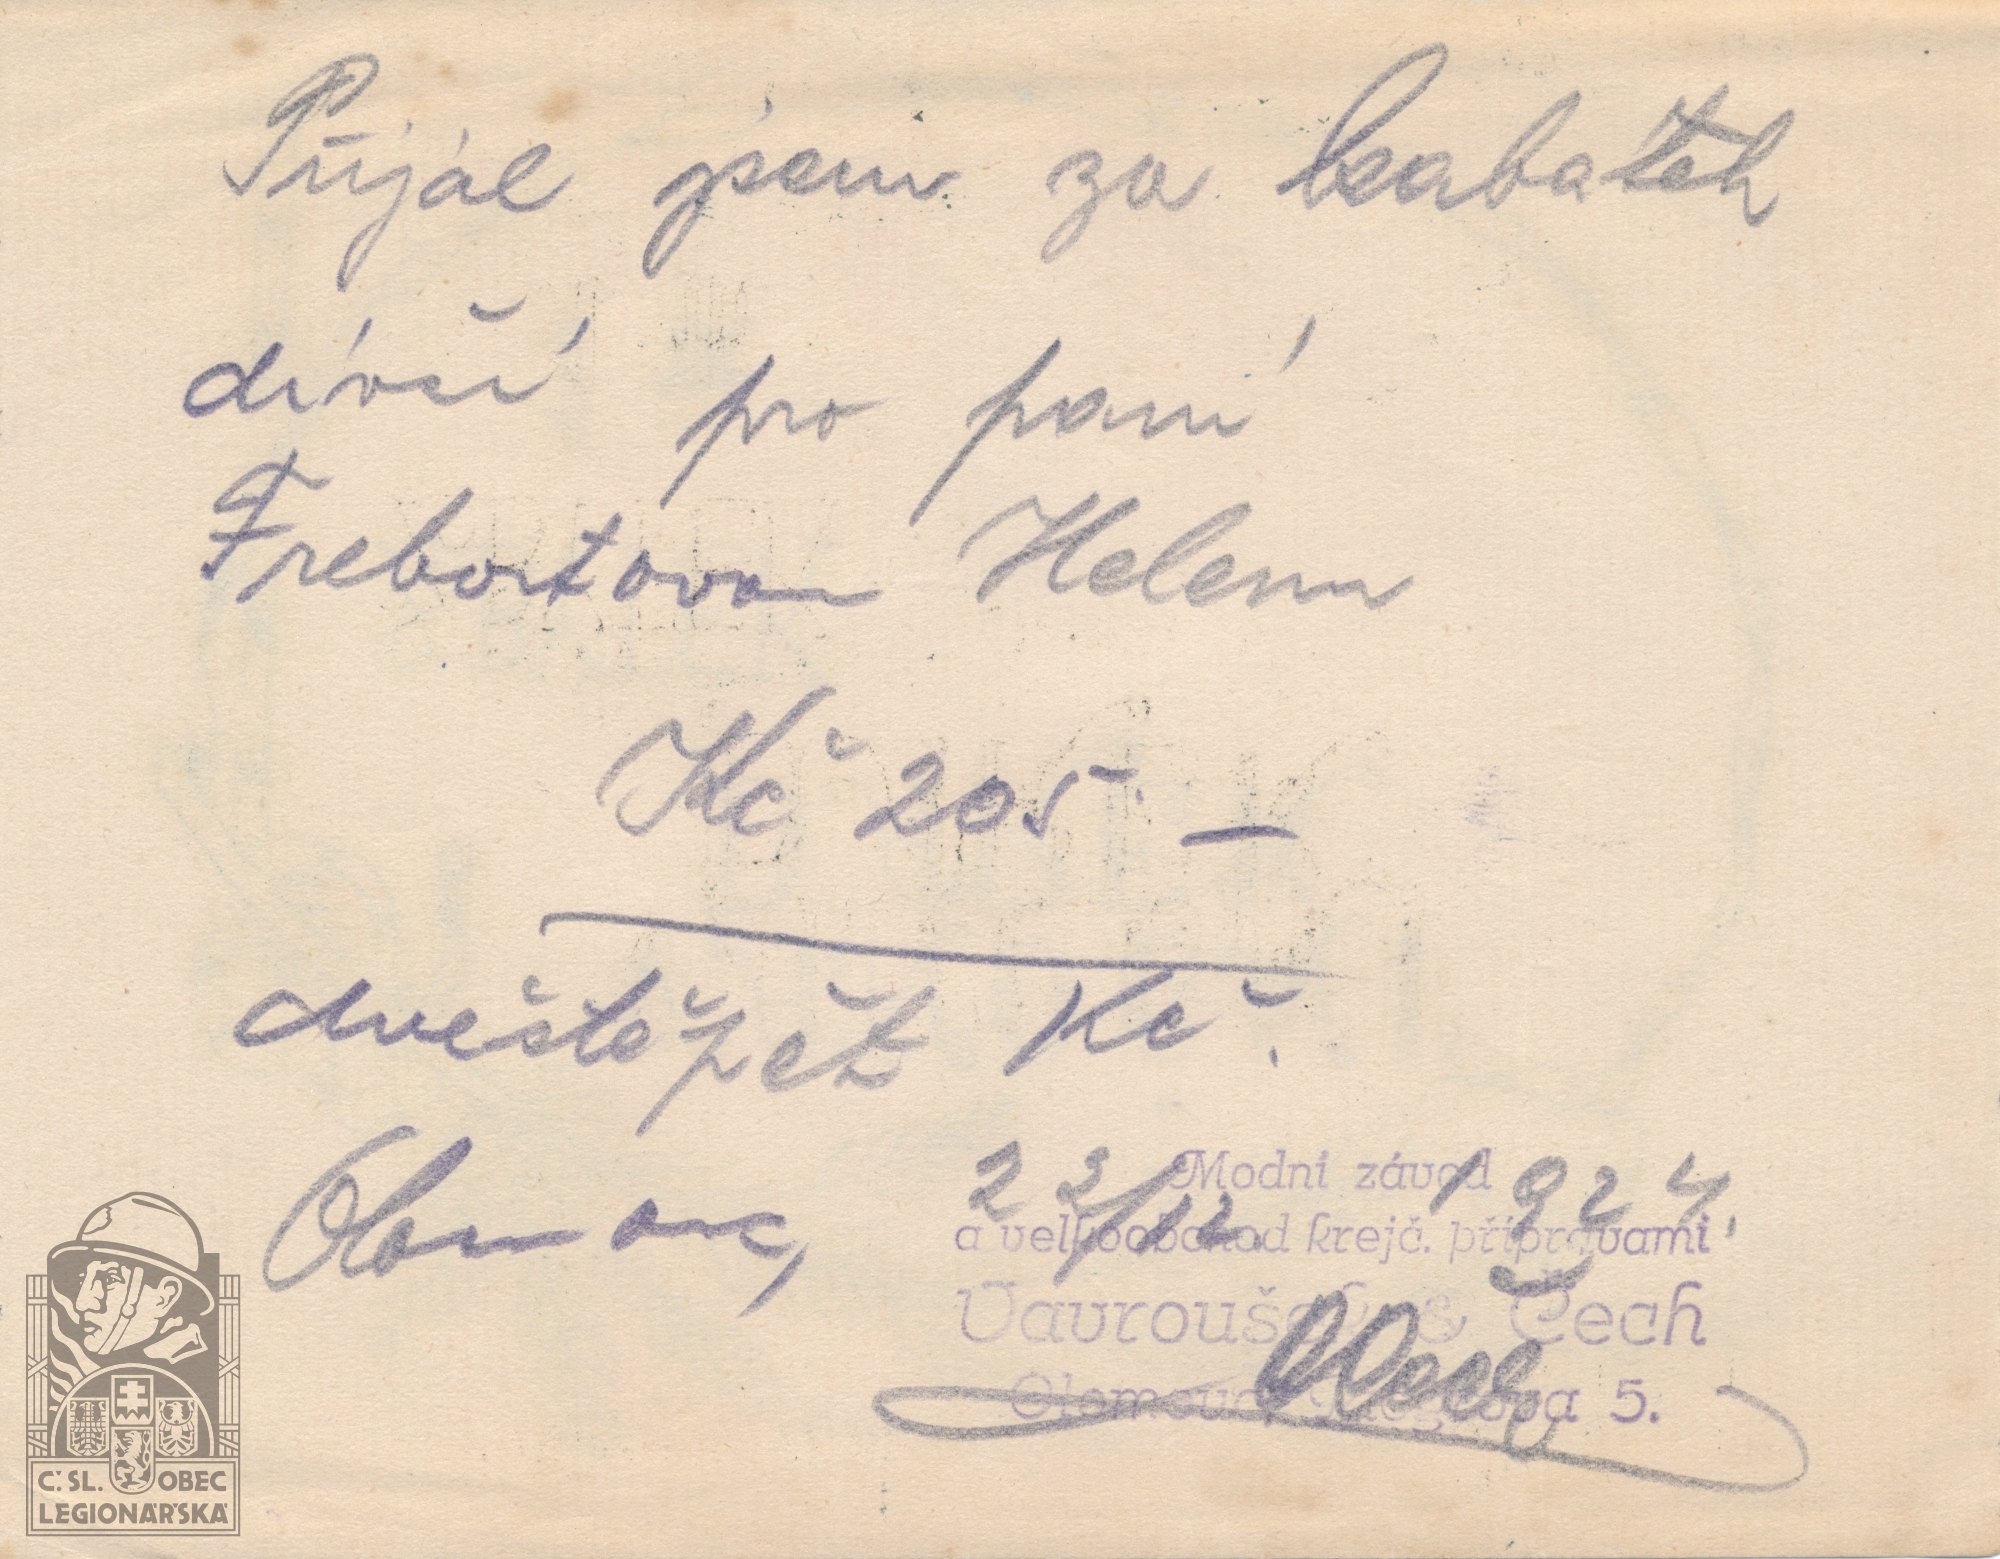 Přijal jsem za kabátek
dívčí pro paní
Frebortovou Helenu
Kč 205 –
dvěstěpět Kč.
Olomouc, 23/12. 1924.
Modní závod
a velkoobchod krejč. přípravami
Vavroušek & Čech
Olomouc, 5.
Čech
Č. SL. OBEC
LEGIONÁŘSKÁ